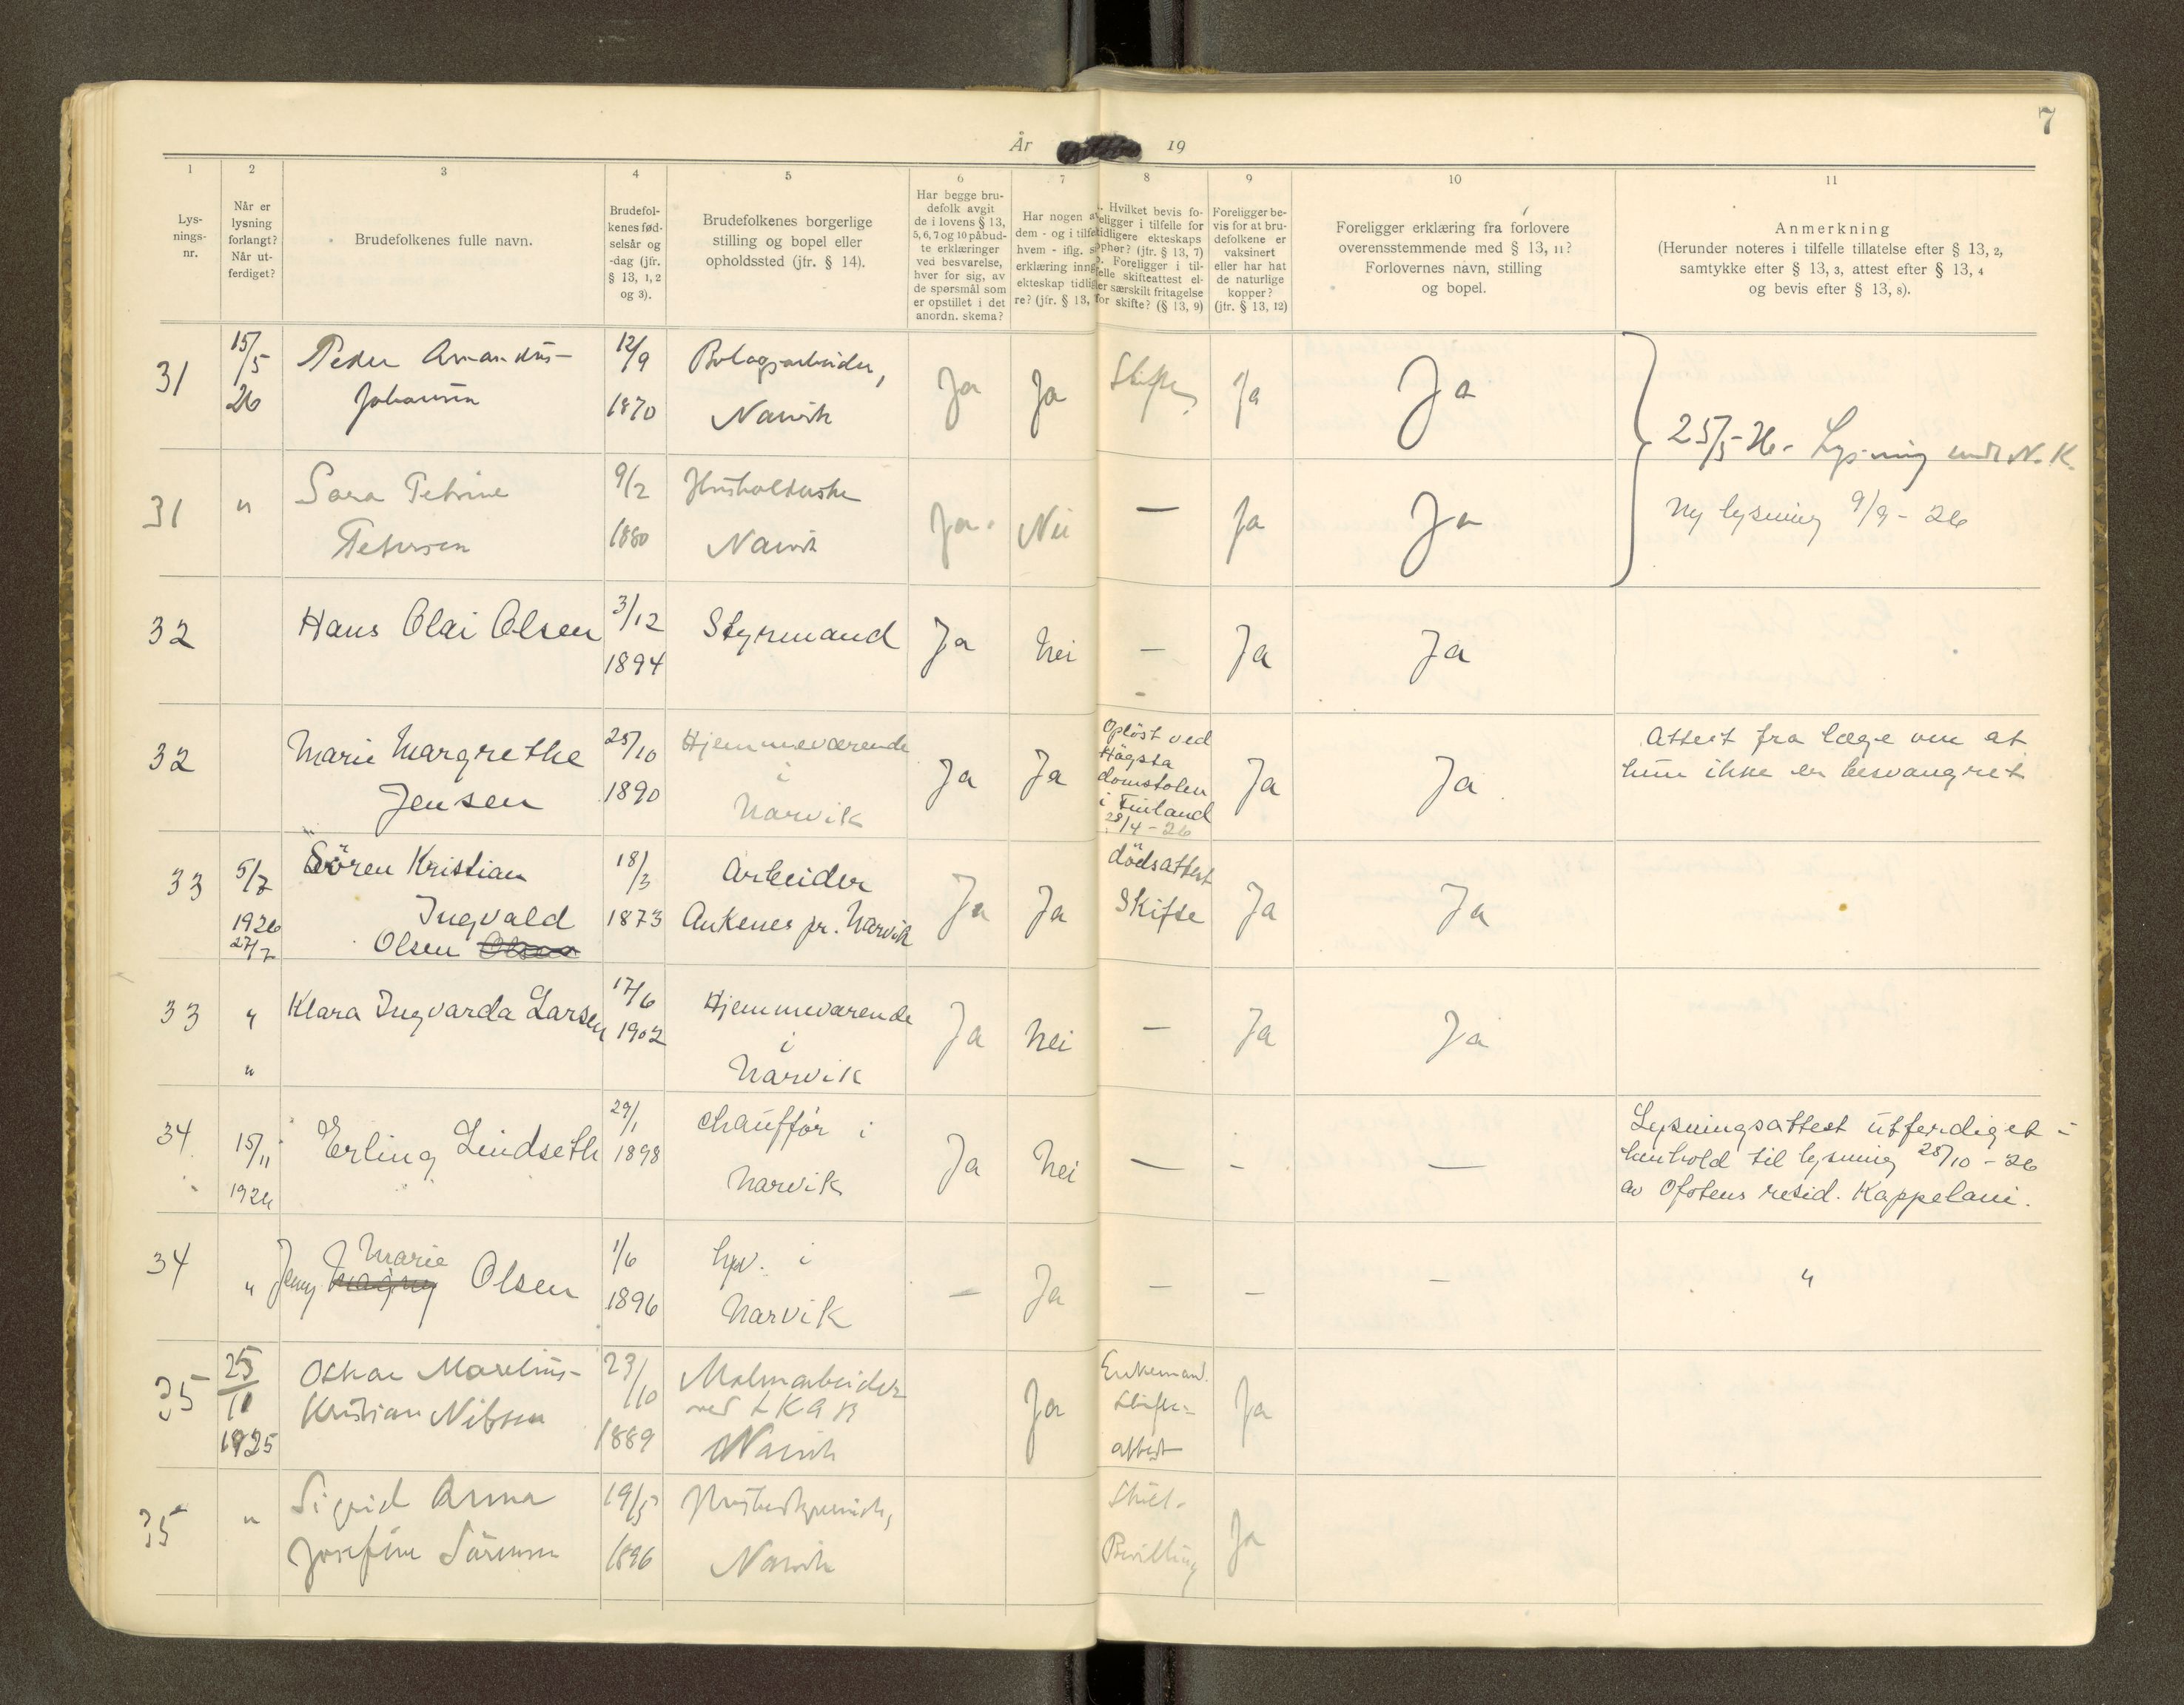 7
År 19
1 2 3 4 5 6 7 8 9 10 11
Lys-
nings-
nr.
Når er
lysning
forlangt?
Når ut-
ferdiget?
Brudefolkenes fulle navn.
Brudefol-
kenes fød-
selsår og
-dag (jfr.
§ 13, 1, 2
og 3).
Brudefolkenes borgerlige
stilling og bopel eller
opholdssted (jfr. § 14).
Har begge bru-
defolk avgit
de i lovens § 13,
5, 6, 7 og 10 påbud-
te erklæringer
ved besvarelse,
hver for sig, av
de spørsmål som
er opstillet i det
anordn. skema?
Har nogen av
dem - og i tilfe
hvem - iflg. s
erklæring inng
ekteskap tidlig
re? (jfr. § 13,
Hvilket bevis fo-
religger i tilfelle for
tidligere ekteskaps
ophør? (jfr. § 13, 7)
2. Foreligger i til-
felle skifteattest el-
ler særskilt fritagelse
for skifte? (§ 13, 9)
Foreligger be-
vis for at bru-
defolkene er
vaksinert
eller har hat
de naturlige
kopper?
(jfr. § 13, 12)
Foreligger erklæring fra forlovere
overensstemmende med § 13, 11?
Forlovernes navn, stilling
og bopel.
Anmerkning
(Herunder noteres i tilfelle tillatelse efter § 13, 2,
samtykke efter § 13, 3, attest efter § 13, 4
og bevis efter § 13, 8).
31
15/5
26
Peder Amandus-
Johansen
12/9
1870
Bolagsarbeider,
Narvik
Ja
Ja
Skifte
Ja
Ja
25/5-26- Lysning
Ny lysning 9/9-26
31
"
Sara Petrine
Petersen
9/2
1880
Husholderske
Narvik
Ja.
Nei
—
Ja
Ja
32
Hans Olai Olsen
3/12
1894
Styrmand
Ja
Nei
—
Ja
Ja
32
Marie Margrethe
Jensen
25/10
1890
Hjemmeværende
i
Narvik
Ja
Ja
Opløst ved
Högsta
domstolen
i Finland
28/4-26
Ja
Ja
Attest fra læge om at
hun ikke er besvangret
33
5/7
1926
27/7
Sören Kristian
Ingvald
Olsen
18/3
1873
Arbeider
Ankenes pr. Narvik
Ja
Ja
dödsattest
Skifte
Ja
Ja
33
"
"
Klara Ingvarda Larsen
17/6
1902
Hjemmeværende
i
Narvik
Ja
Nei
—
Ja
Ja
34
15/11
1926
Erling Lindseth
29/1
1898
Chauffør i
Narvik
Ja
Nei
—
-
—
Lysningsattest utferdiget i
henhold til lysning 28/10-26
av Ofotens resid. Kappelani.
34
"
Jenny Marie Olsen
1/6
1896
hpv. i
Narvik
—
Ja
—
—
—
"
35
25/11
1925
Oskar Marelius-
Kristian Nilsen
23/10
1889
Malmarbeider
ved LKAB
Narvik
Ja
Enkemand.
Skifte-
attest
Ja
35
"
Sigrid Anna
Josefine Sörensen
19/5
1896
Narvik
Skils.
Bevilling
Ja